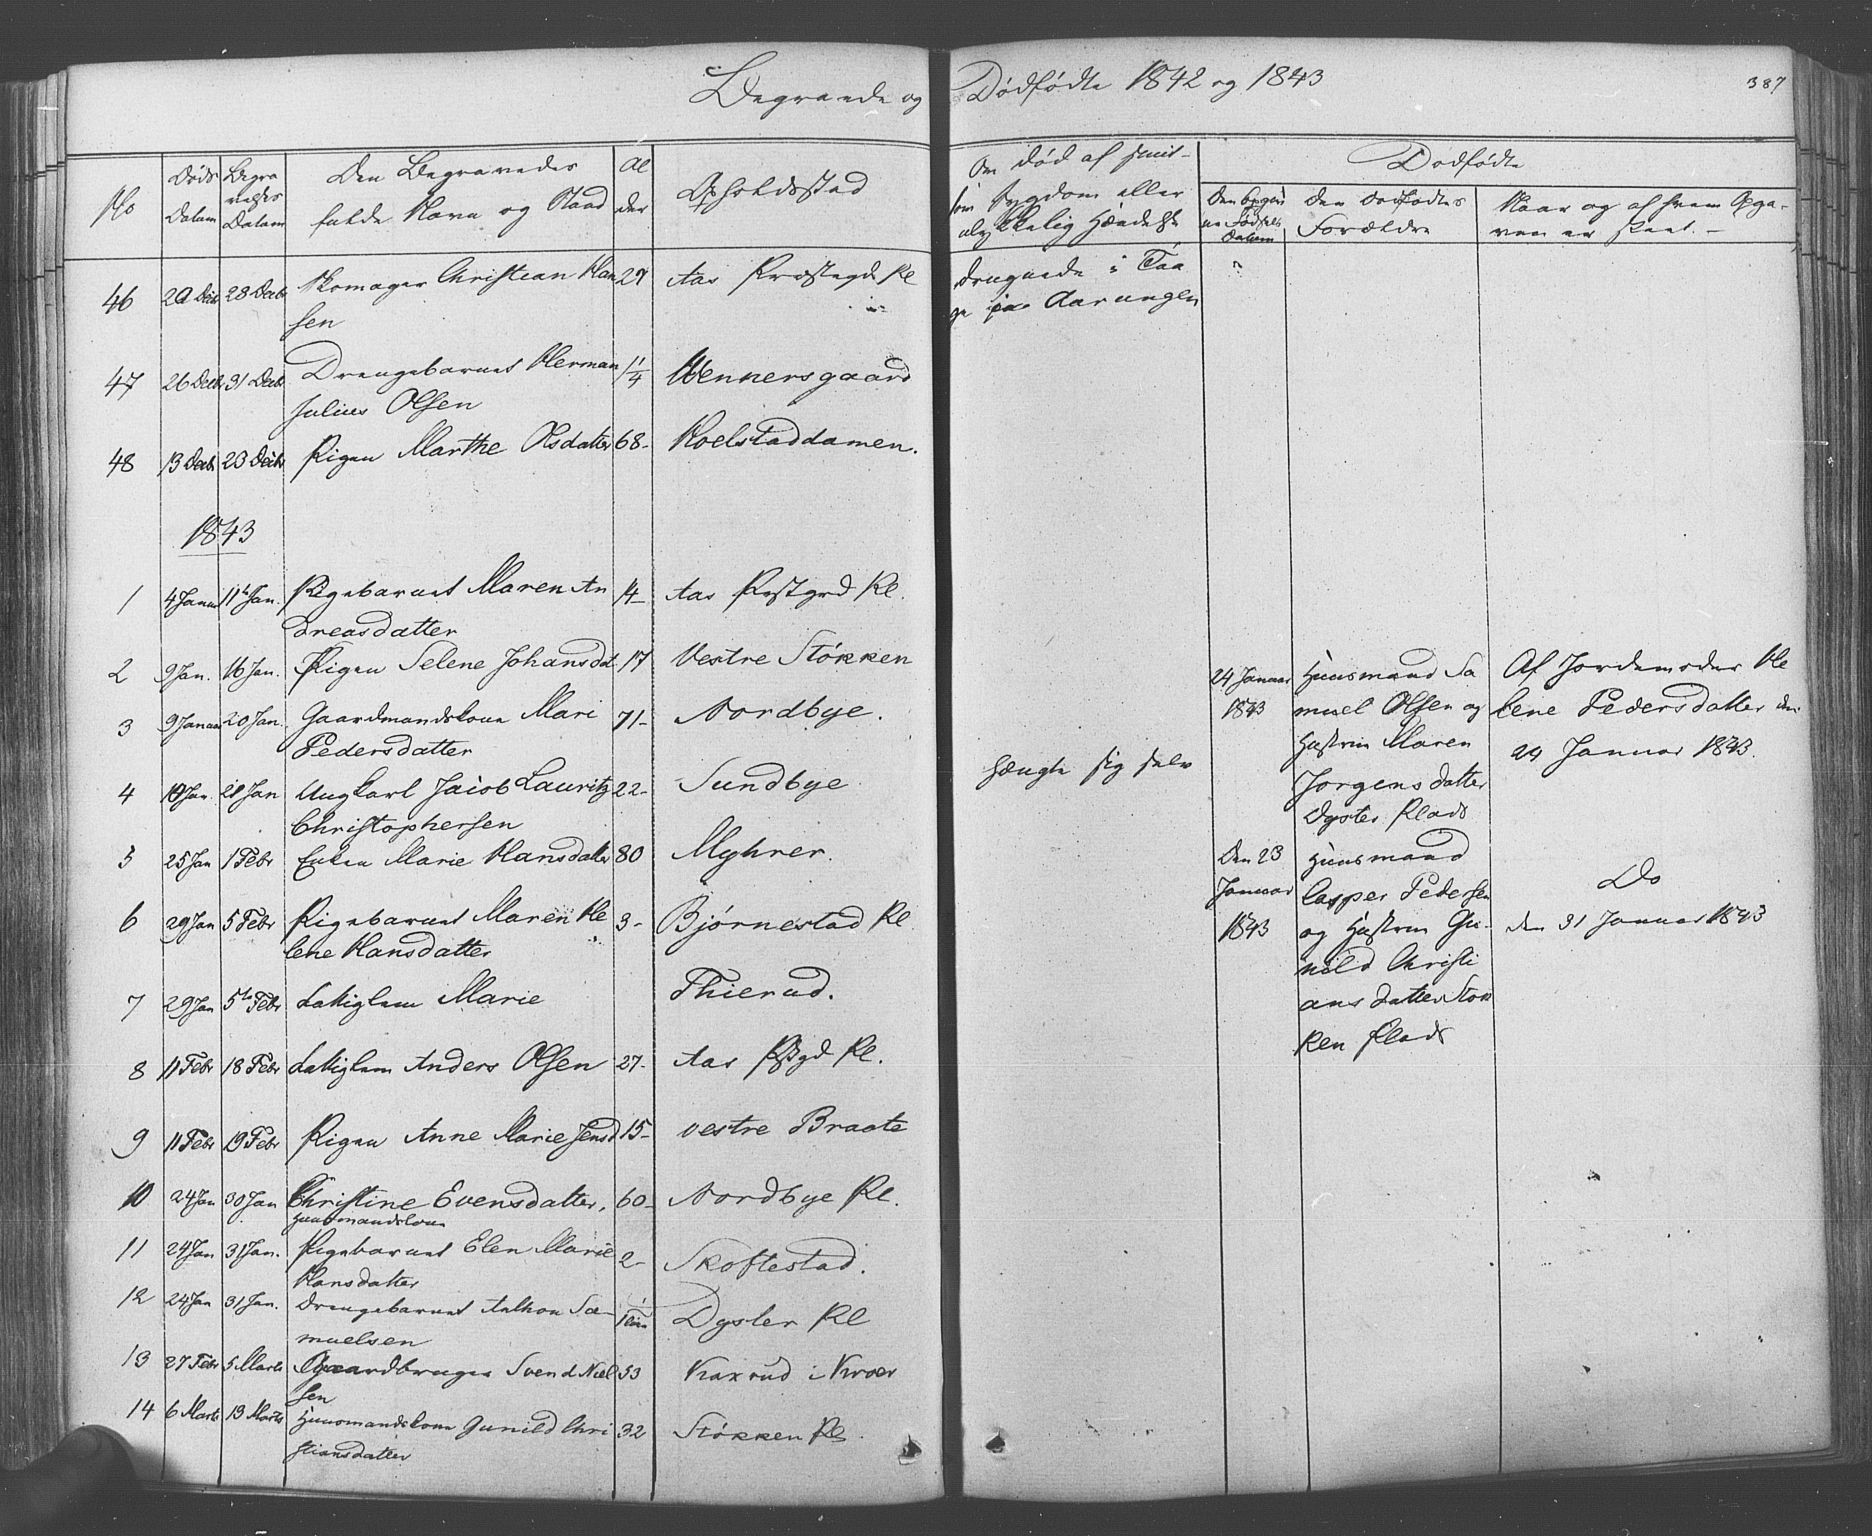 Begravede og Dødfødte 1842 og 1843
387
No
Døds Datum
Begravelses Datum
Den Begravedes fulde Navn og Stand
Alder
Opholdssted
Om død af smitsom Sygdom eller ulykkelig Hændelse
Dødfødte
Den Fødsels Datum
Den Dødfødtes Forældre
Naar og af hvem Opgaven er skeet. -
46 20 Decbr 28 Decbr Skomager Christian Han 27 Aas Præstegd Pl
sen
druknede i Taa
ge paa Aarungen
47 26 Decbr 31 Decbr Drengebarnet Herman 1 1/4 Wennersgaard
Julius Olsen
48 13 Decbr 23 Decbr Pigen Marthe Olsdatter 68- Holstaddamen.
1843
1 4 Januar 11te Jan. Pigebarnet Maren An 14- Aas Prstgrd Pl.
dreasdatter
2 9 Jan. 16 Jan. Pigen Selene Johansdat. 17 Vestre Støkken
3 9 Januar 20 Jan. Gaardmandskone Mari 71- Nordbye.
Pedersdatter
4 19 Jan. 28 Jan Ungkarl Jacob Lauritz 22- Sundbye
Christophersen
hængte sig selv
5 25 Jan 1 Febr Enken Marie Hansdatter 80 Myhrer.
6 29 Jan 5 Febr Pigebarnet Maren He 3- Bjørnestad Pl
lene Hansdatter
7 29 Jan 5te Febr Lægdslem Marie Thierud.
8 11 Febr 18 Febr Lægdslem Anders Olsen 27- Aas Pstgd Pl.
9 11 Febr 19 Febr Pigen Anne Marie Jensd 15- vestre Braate
10 24 Jan 30 Jan Christine Evensdatter, 60- Nordbye Pl.
Huusmandskone
11 24 Jan 31 Jan. Pigebarnet Elen Marie 2- Skoftestad.
Hansdatter
12 24 Jan 31 Jan. Drengebarnet Anthon Sa- Dyster Pl
muelsen
13 27 Febr 5 Marts Gaardbruger Svend Niel 53 Kaxrud i Kroer
sen
14 6 Marts 13 Marts Huusmandskone Gunild Chri 32 Støkken Pl.
stiansdatter
24 Januar
1843
Huusmand Sa
muel Olsen og
Hustru Maren
Jørgensdatter
Dyster Plads
Af Jordemoder He
lene Pedersdatter den
24 Januar 1843.
Den 23
Januar
1843
Huusmand
Casper Pedersen
og Hustru Gu-
nild Christi
ansdatter Støk
ken Plads
Do
den 31 Januar 1843